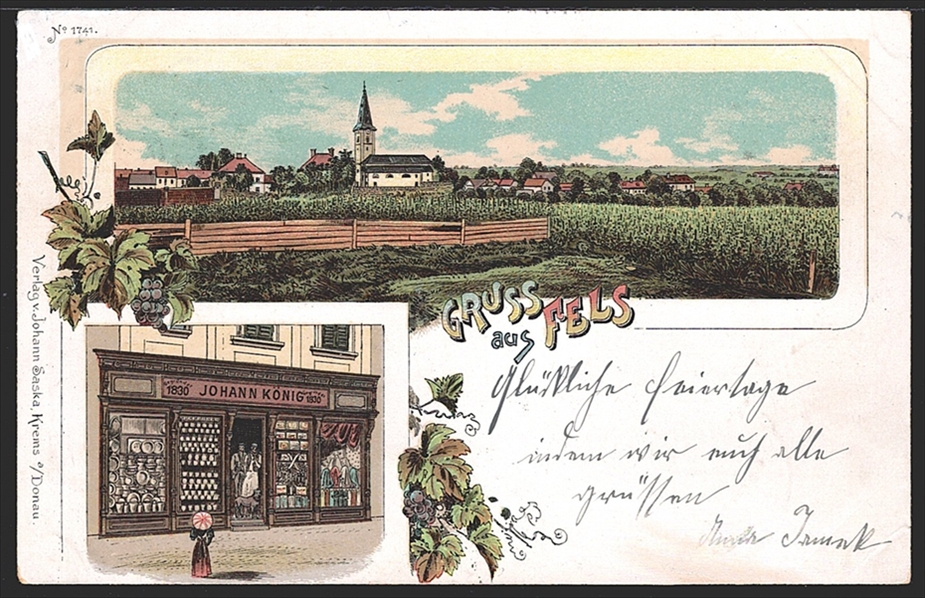 No 1741.
GRUSS
aus FELS
1830 JOHANN KÖNIG 1830
Glückliche Feiertage
indem wir euch alle
grüssen
Verlag v. Johann Saska, Krems a/Donau.